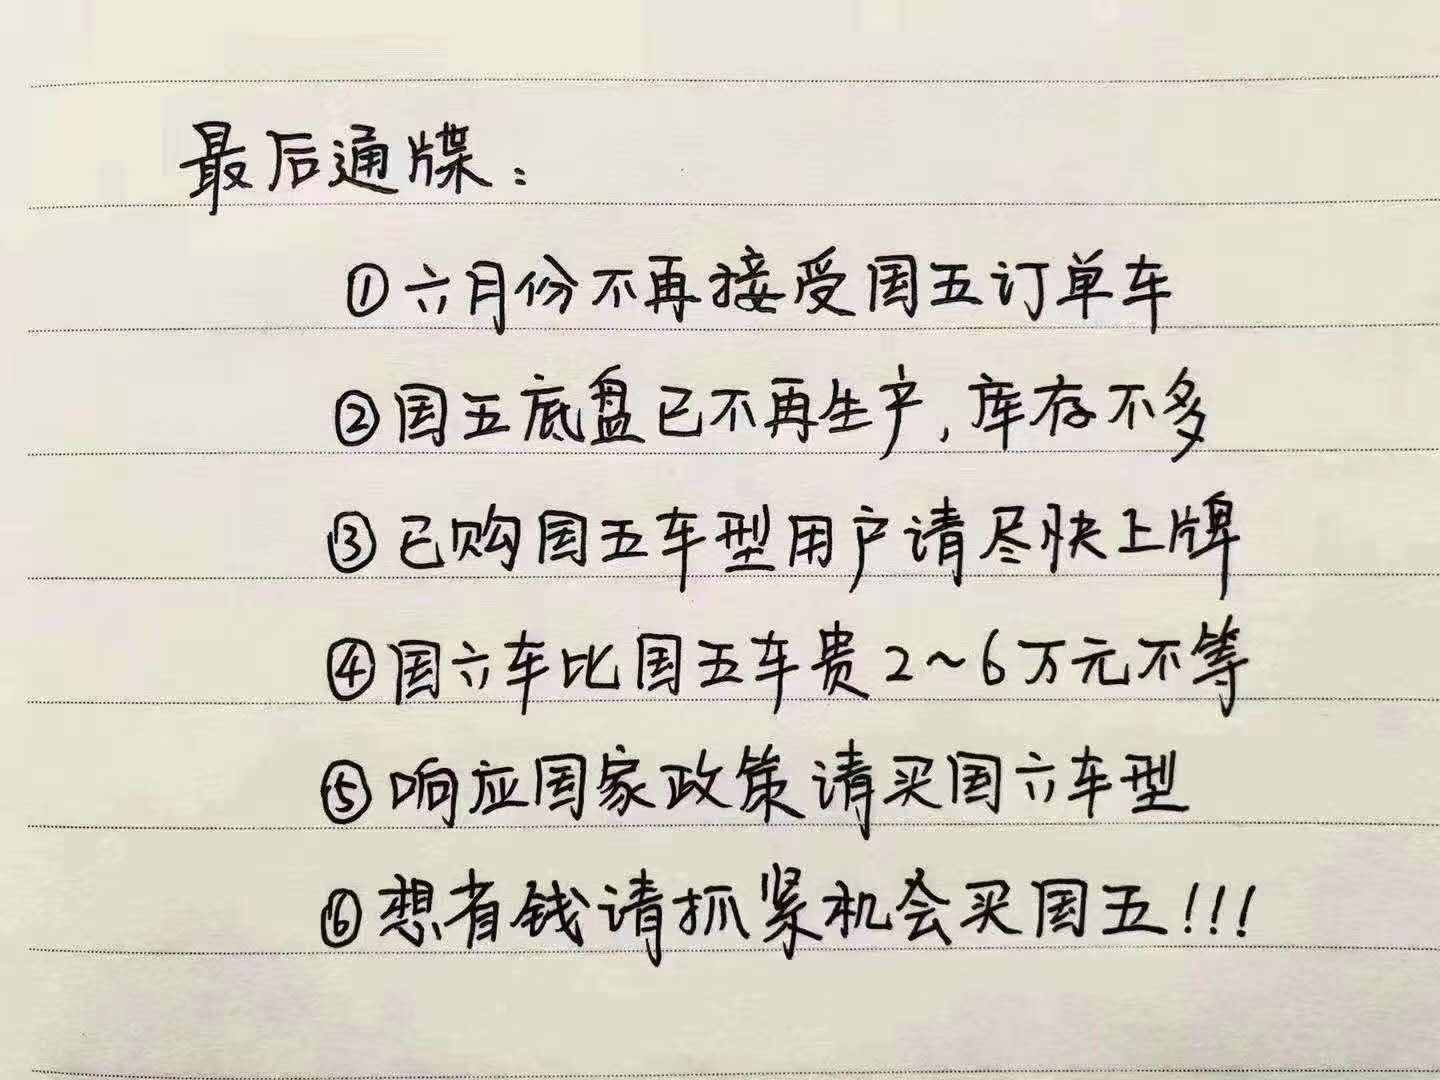 最后通牒：
①六月份不再接受国五订单车
②国五底盘已不再生产,库存不多
③已购国五车型用户请尽快上牌
④国六车比国五车贵2~6万元不等
⑤响应国家政策请买国六车型
⑥想省钱请抓紧机会买国五!!!